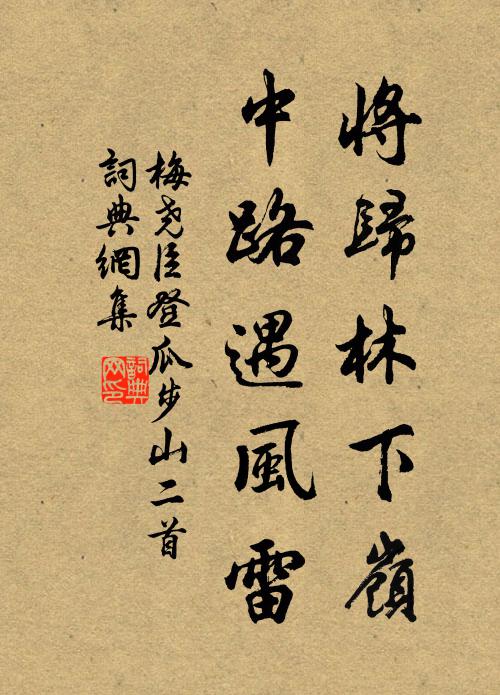 將歸林下嶺
中路遇風雷
梅堯臣登瓜步山二首
詞典網集
詞典網印